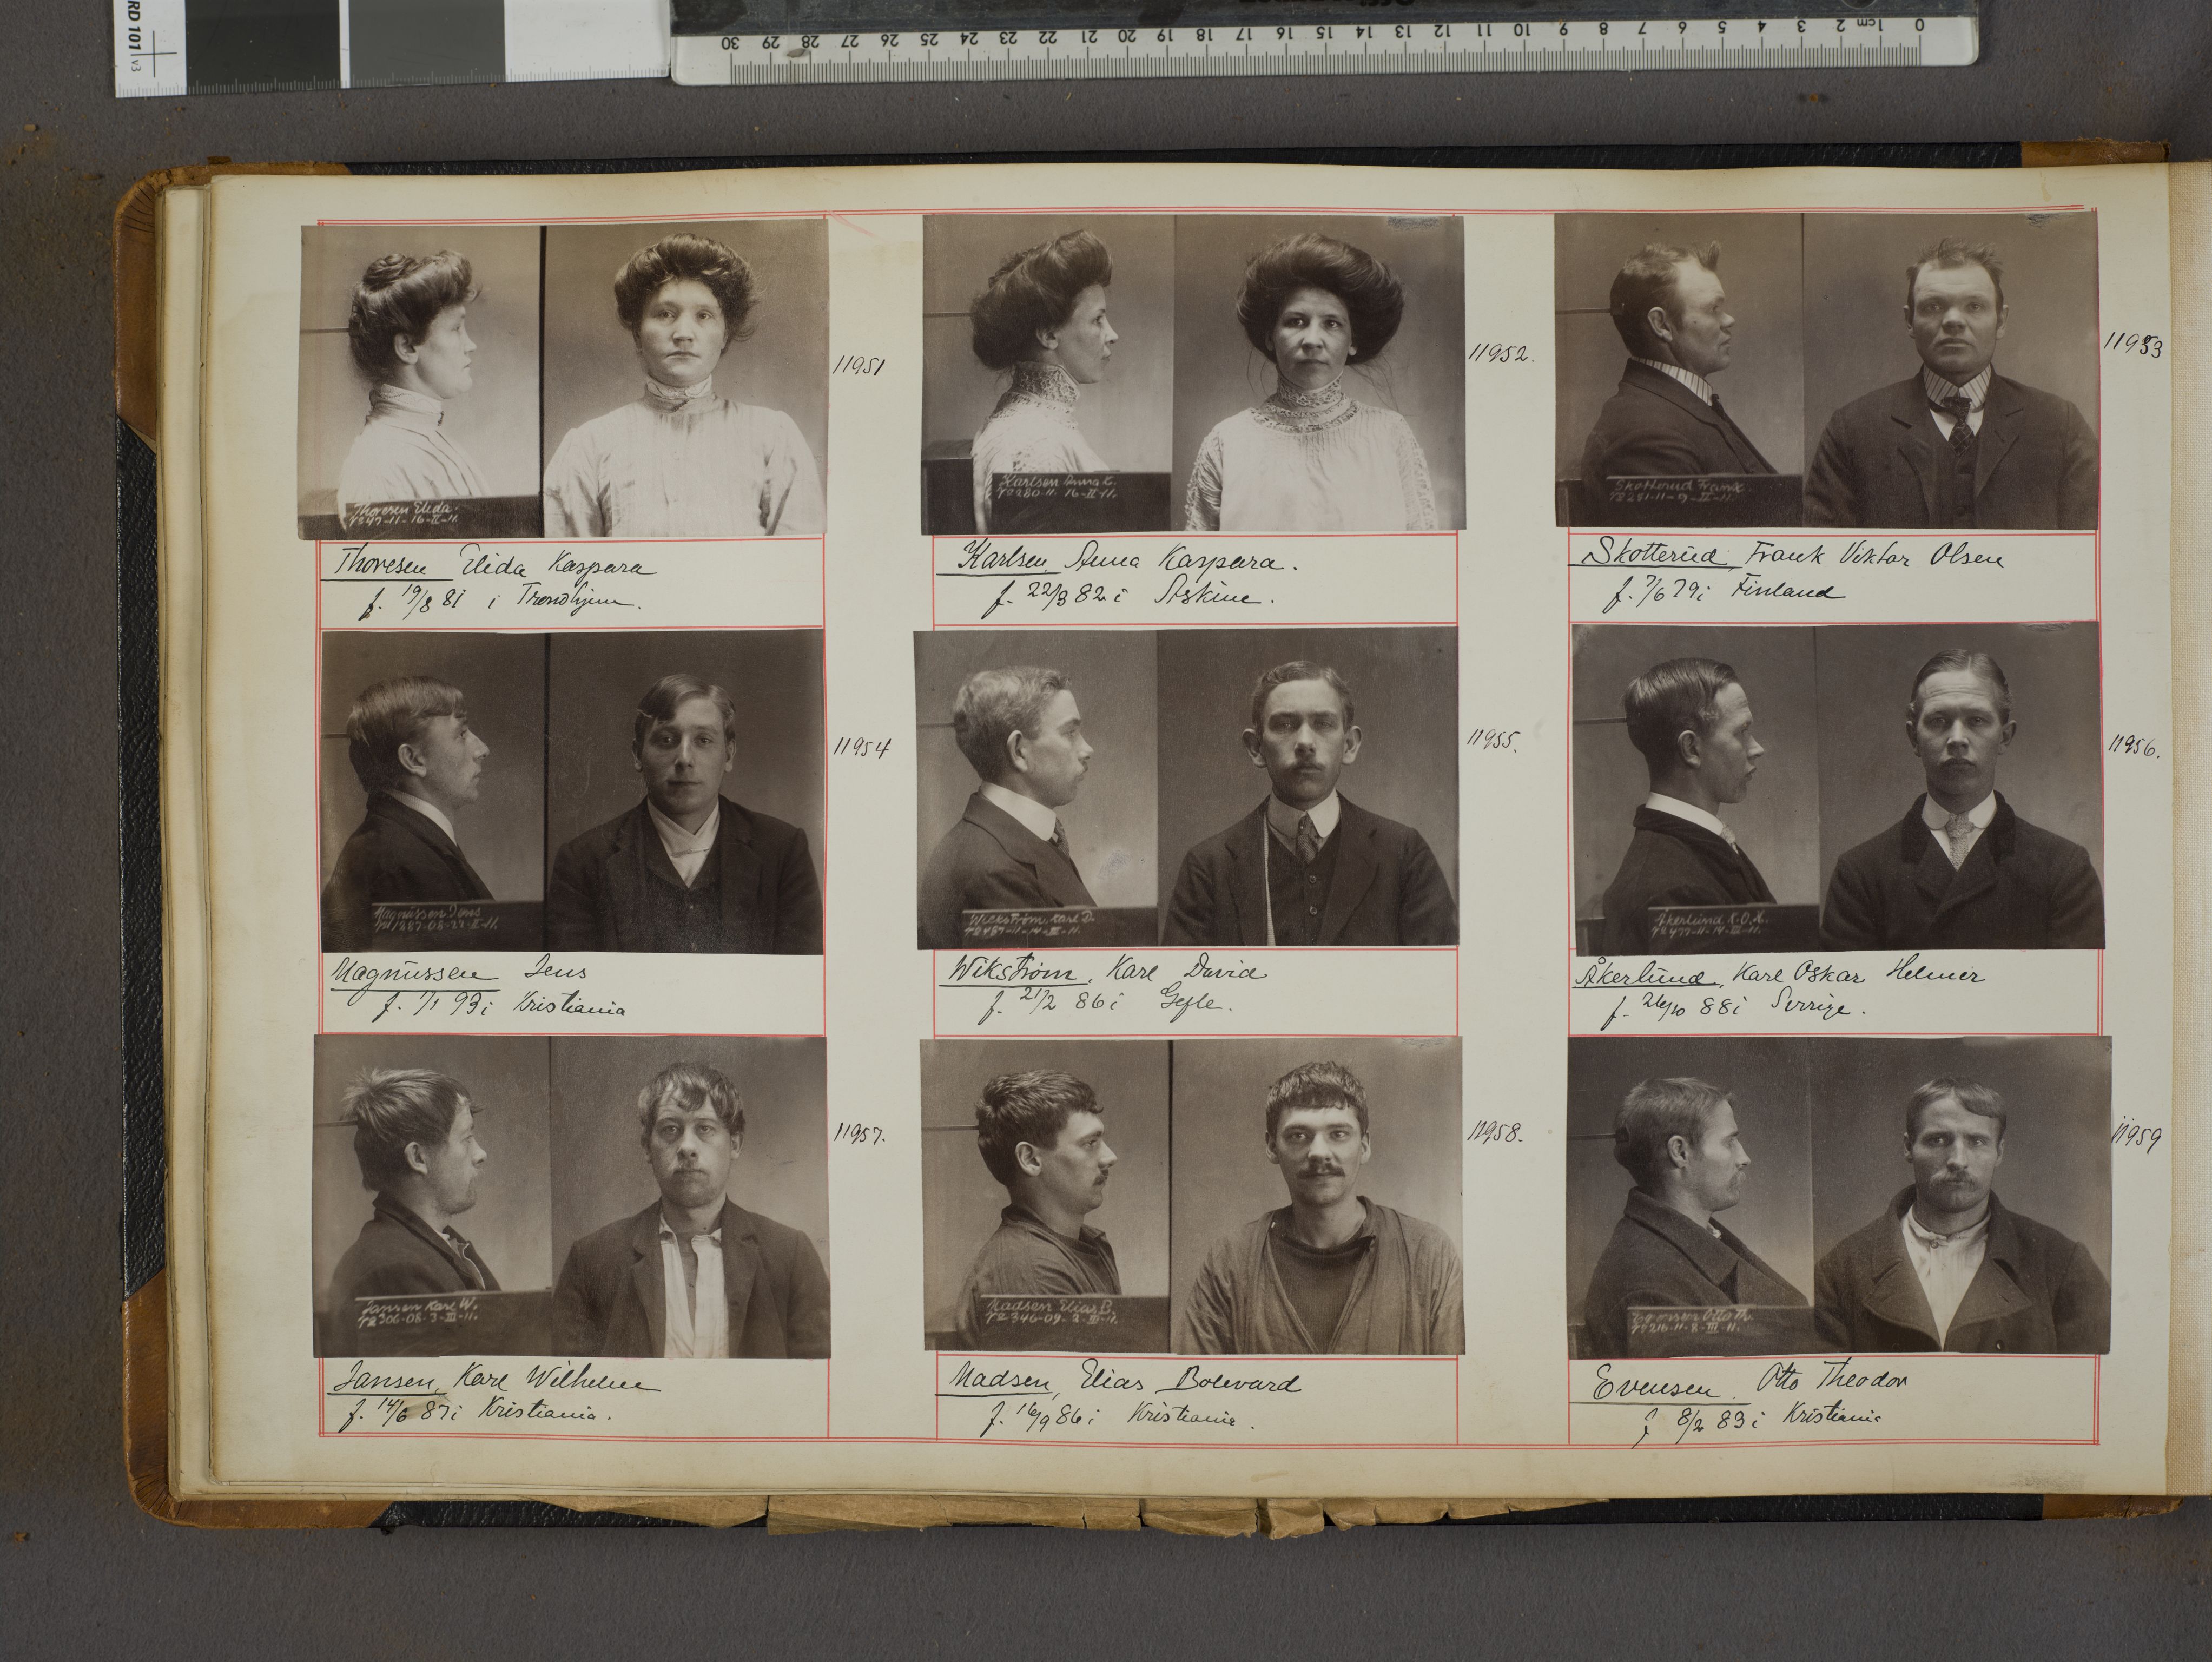 RD 101 v3
0 1cm 2 3 4 5 6 7 8 9 10 11 12 13 14 15 16 17 18 19 20 21 22 23 24 25 26 27 28 29 30
Thoresen Elida.
16-II-11.
11951
Thoresen Elida Kaspara
f. 19/8 81 i Trondhjem.
Karlsen Anna K.
280-11. 16-II-11.
11952.
Karlsen Anna Kaspara.
f. 22/3 82 i Askim.
Skotterud Frank.
281-11-9-II-11.
11953
Skotterud, Frank Viktor Olsen
f. 7/6 79 i Finland
Magnussen Jens
11954
Magnussen Jens
f. 7/1 93 i Kristiania
Wickström, Karl D.
487-11-14-III-11.
11955.
Wikstrøm, Karl David
f. 21/2 86 i Gefle.
Åkerlund K.O.H.
477-11-14-III-11.
11956.
Åkerlund, Karl Oskar Helmer
f. 26/10 88 i Sverige.
Jansen Karl W.
306-08-3-III-11.
11957.
Jansen, Karl Wilhelm
f. 14/6 87 i Kristiania.
Madsen Elias B.
346-09-3-III-11.
11958.
Madsen, Elias Bolevard
f. 16/9 86 i Kristiania.
Evensen Otto Th.
216-11-8-III-11.
11959
Evensen, Otto Theodor
f 8/2 83 i Kristiania